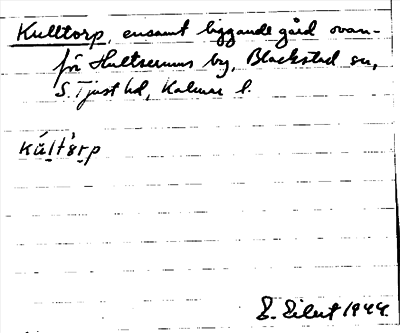 Kulltorp, ensamt liggande gård ovan-
för Hultserums by, Blackstad sn,
S. Tjust hd, Kalmar l.
kúlt`ɛrp
E. Eilert 1944.